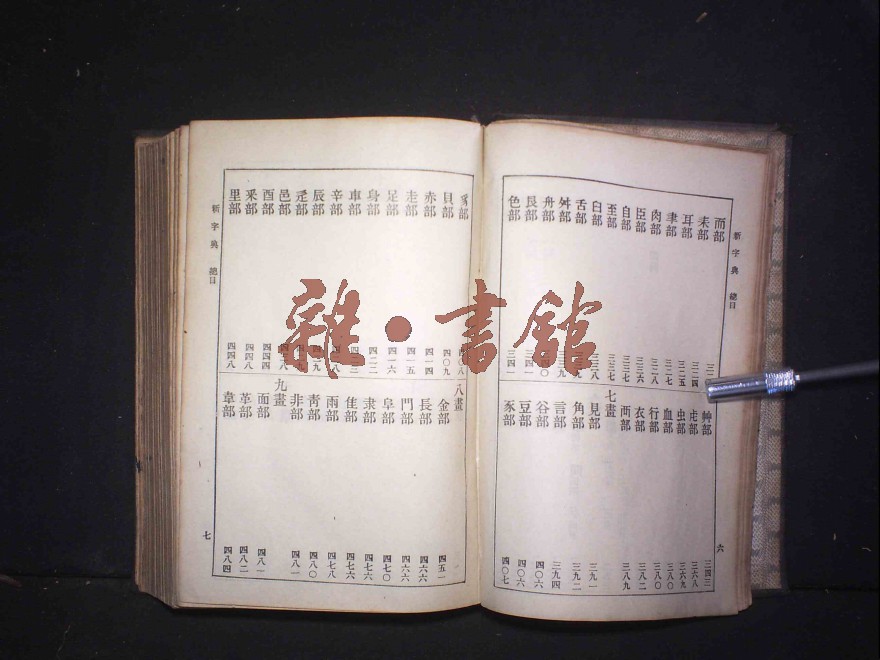 新字典 總目
而部
耒部 三二四
耳部 三二五
聿部 三二七
肉部 三二八
臣部 三三六
自部 三三七
至部 三三七
臼部 三三八
舌部
舛部
舟部
艮部 三四一
色部 三四一
艸部 三四三
虍部 三六八
虫部 三六九
血部 三八〇
行部 三八〇
衣部 三八二
襾部 三八九
七畫
見部 三九一
角部 三九二
言部 三九四
谷部 四〇六
豆部 四〇六
豕部 四〇七
六
豸部 四〇八
貝部 四〇九
赤部 四一四
走部 四一五
足部 四一六
身部 四二二
車部
辛部
辰部
辵部
邑部
酉部 四四四
釆部 四四八
里部 四四八
八畫
金部 四五一
長部 四六六
門部 四六六
阜部 四七〇
隶部 四七六
隹部 四七六
雨部 四七八
靑部 四八〇
非部 四八一
九畫
面部 四八一
革部 四八二
韋部 四八四
新字典 總目
七
雜·書館